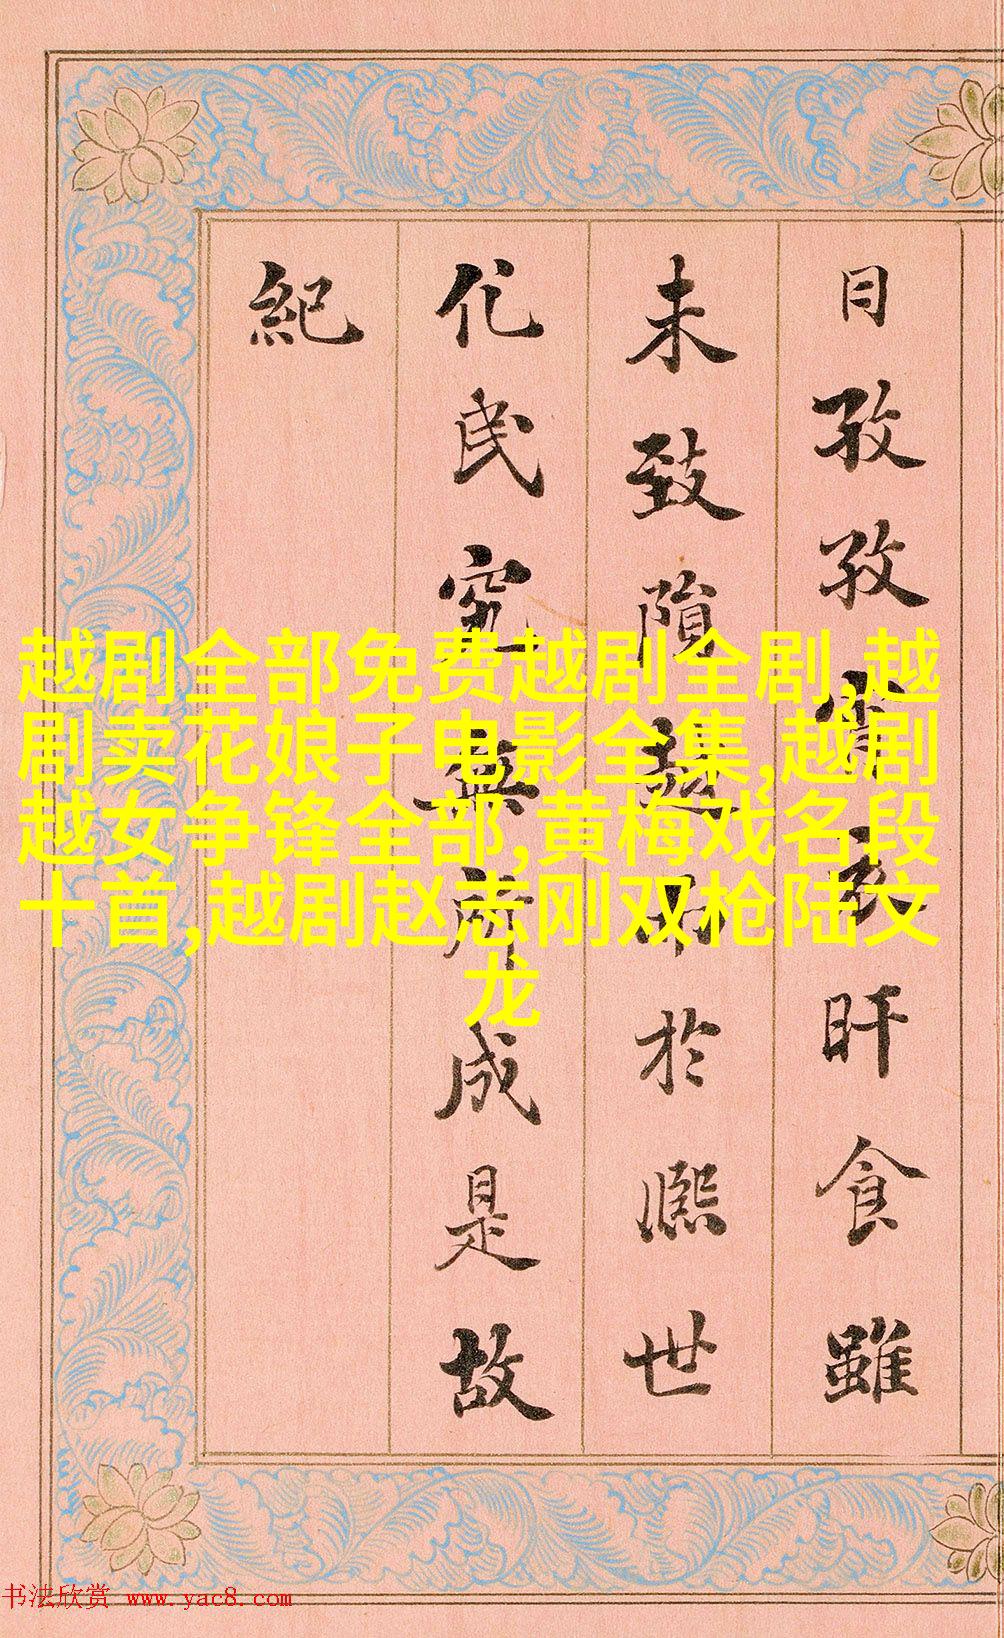 日孜孜宵衣旰食雖
未致隋於熈世
民究無所成是故
紀
越剧全部免费越剧全剧,越
剧卖花娘子电影全集,越剧
越女争锋全部,黄梅戏名段
十首,越剧赵志刚双枪陆文
龙
书法欣赏 www.yac8.com